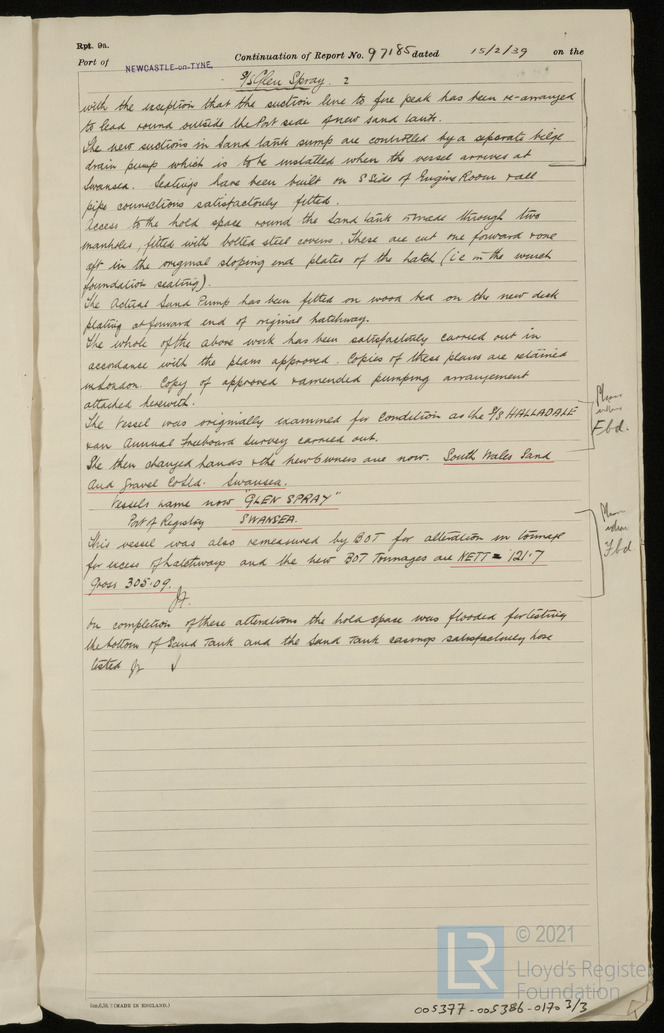 Rpt. 9a.
Port of NEWCASTLE-on-TYNE. Continuation of Report No. 97185 dated 15/2/39 on the
S/S Glen Spray. 2
with the exception that the suction line to fore peak has been re-arranged
to lead round outside the Port side of new sand tank.
The new suctions in Sand tank sump are controlled by a separate bilge
drain pump which is to be installed when the vessel arrives at
Swansea. Seatings have been built on S side of Engine Room & all
pipe connections satisfactorily fitted.
Access to the hold space round the Sand tank is made through two
manholes, fitted with bolted steel covers. These are cut one forward & one
aft in the original sloping end plates of the hatch (i.e in the winch
foundation seating).
The Actual Sand Pump has been fitted on wood bed on the new deck
plating at forward end of original hatchway.
The whole of the above work has been satisfactorily carried out in
accordance with the plans approved. Copies of these plans are retained
in London. Copy of approved & amended pumping arrangement
attached herewith.
The Vessel was originally examined for Condition as the S/S HALLADALE
& an Annual Freeboard Survey carried out.
She then changed hands & the new Owners are now. South Wales Sand
and Gravel Co Ltd. Swansea.
Vessels name now "GLEN SPRAY"
Port of Registry SWANSEA.
This vessel was also remeasured by BOT for alteration in tonnage
for excess of hatchways and the new BOT Tonnages are NETT = 121.7
Gross 305.09.
On completion of these alterations the hold space was flooded for testing
the bottom of Sand Tank and the Sand Tank casings satisfactorily hose
tested ✓
Please
inform
Fbd.
Please
inform
Fbd
(MADE IN ENGLAND.)
© 2021
LR
Lloyd's Register
Foundation
005377-005386-0170 3/3